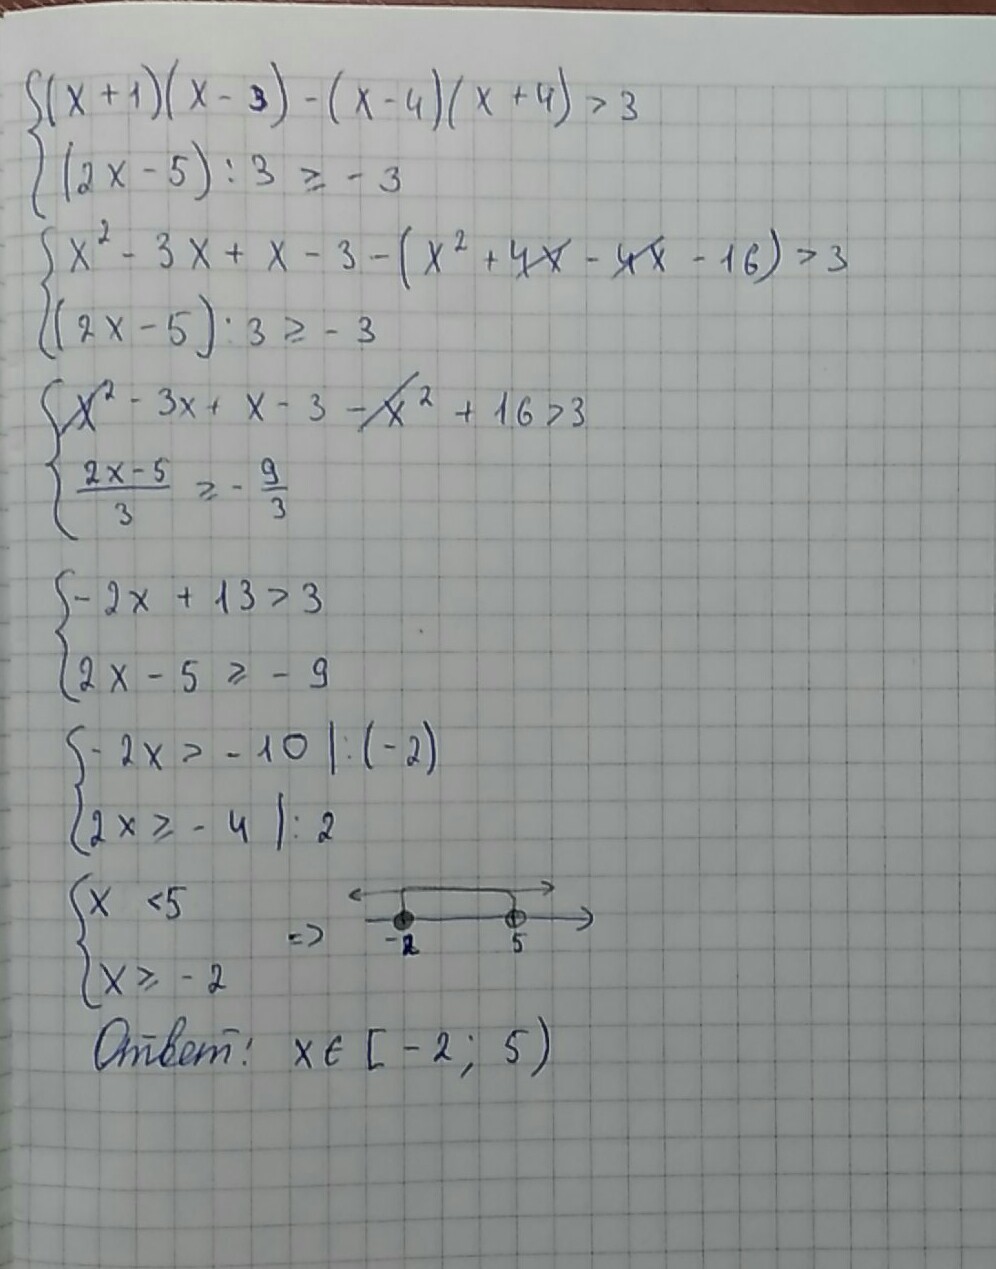 {(x+1)(x-3)-(x-4)(x+4)>3
(2x-5):3≥-3
{x²-3x+x-3-(x²+4x-4x-16)>3
(2x-5):3≥-3
{x²-3x+x-3-x²+16>3
(2x-5)/3≥-9/3
{-2x+13>3
2x-5≥-9
{-2x>-10|:(-2)
2x≥-4|:2
{x<5
=>
-2 5
x≥-2
Ответ: x∈[-2; 5)